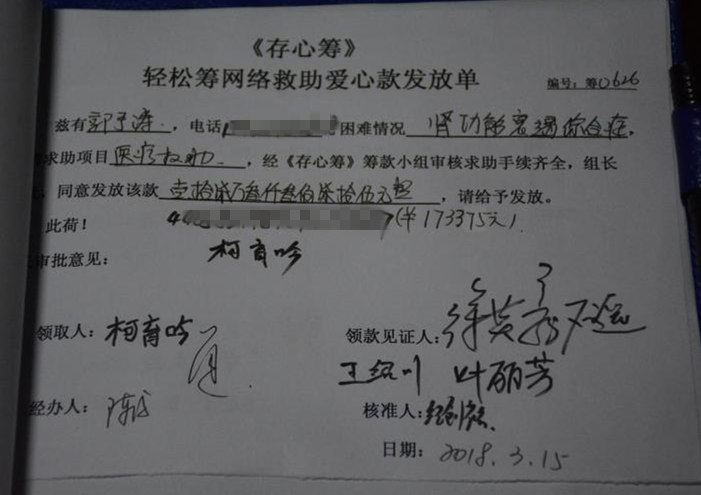 《存心筹》
轻松筹网络救助爱心款发放单
编号：筹0626
兹有郭于涛，电话 困难情况 肾功能衰竭综合症，
求助项目 医疗救助，经《存心筹》筹款小组审核求助手续齐全，组长
同意发放该款 壹拾柒万叁仟叁佰柒拾伍元整，请给予发放。
此荷！ (¥173375元)
审批意见： 柯育吟
领取人：柯育吟 领款见证人：
王绍川 叶丽芳
经办人： 核准人：
日期：2018.3.15